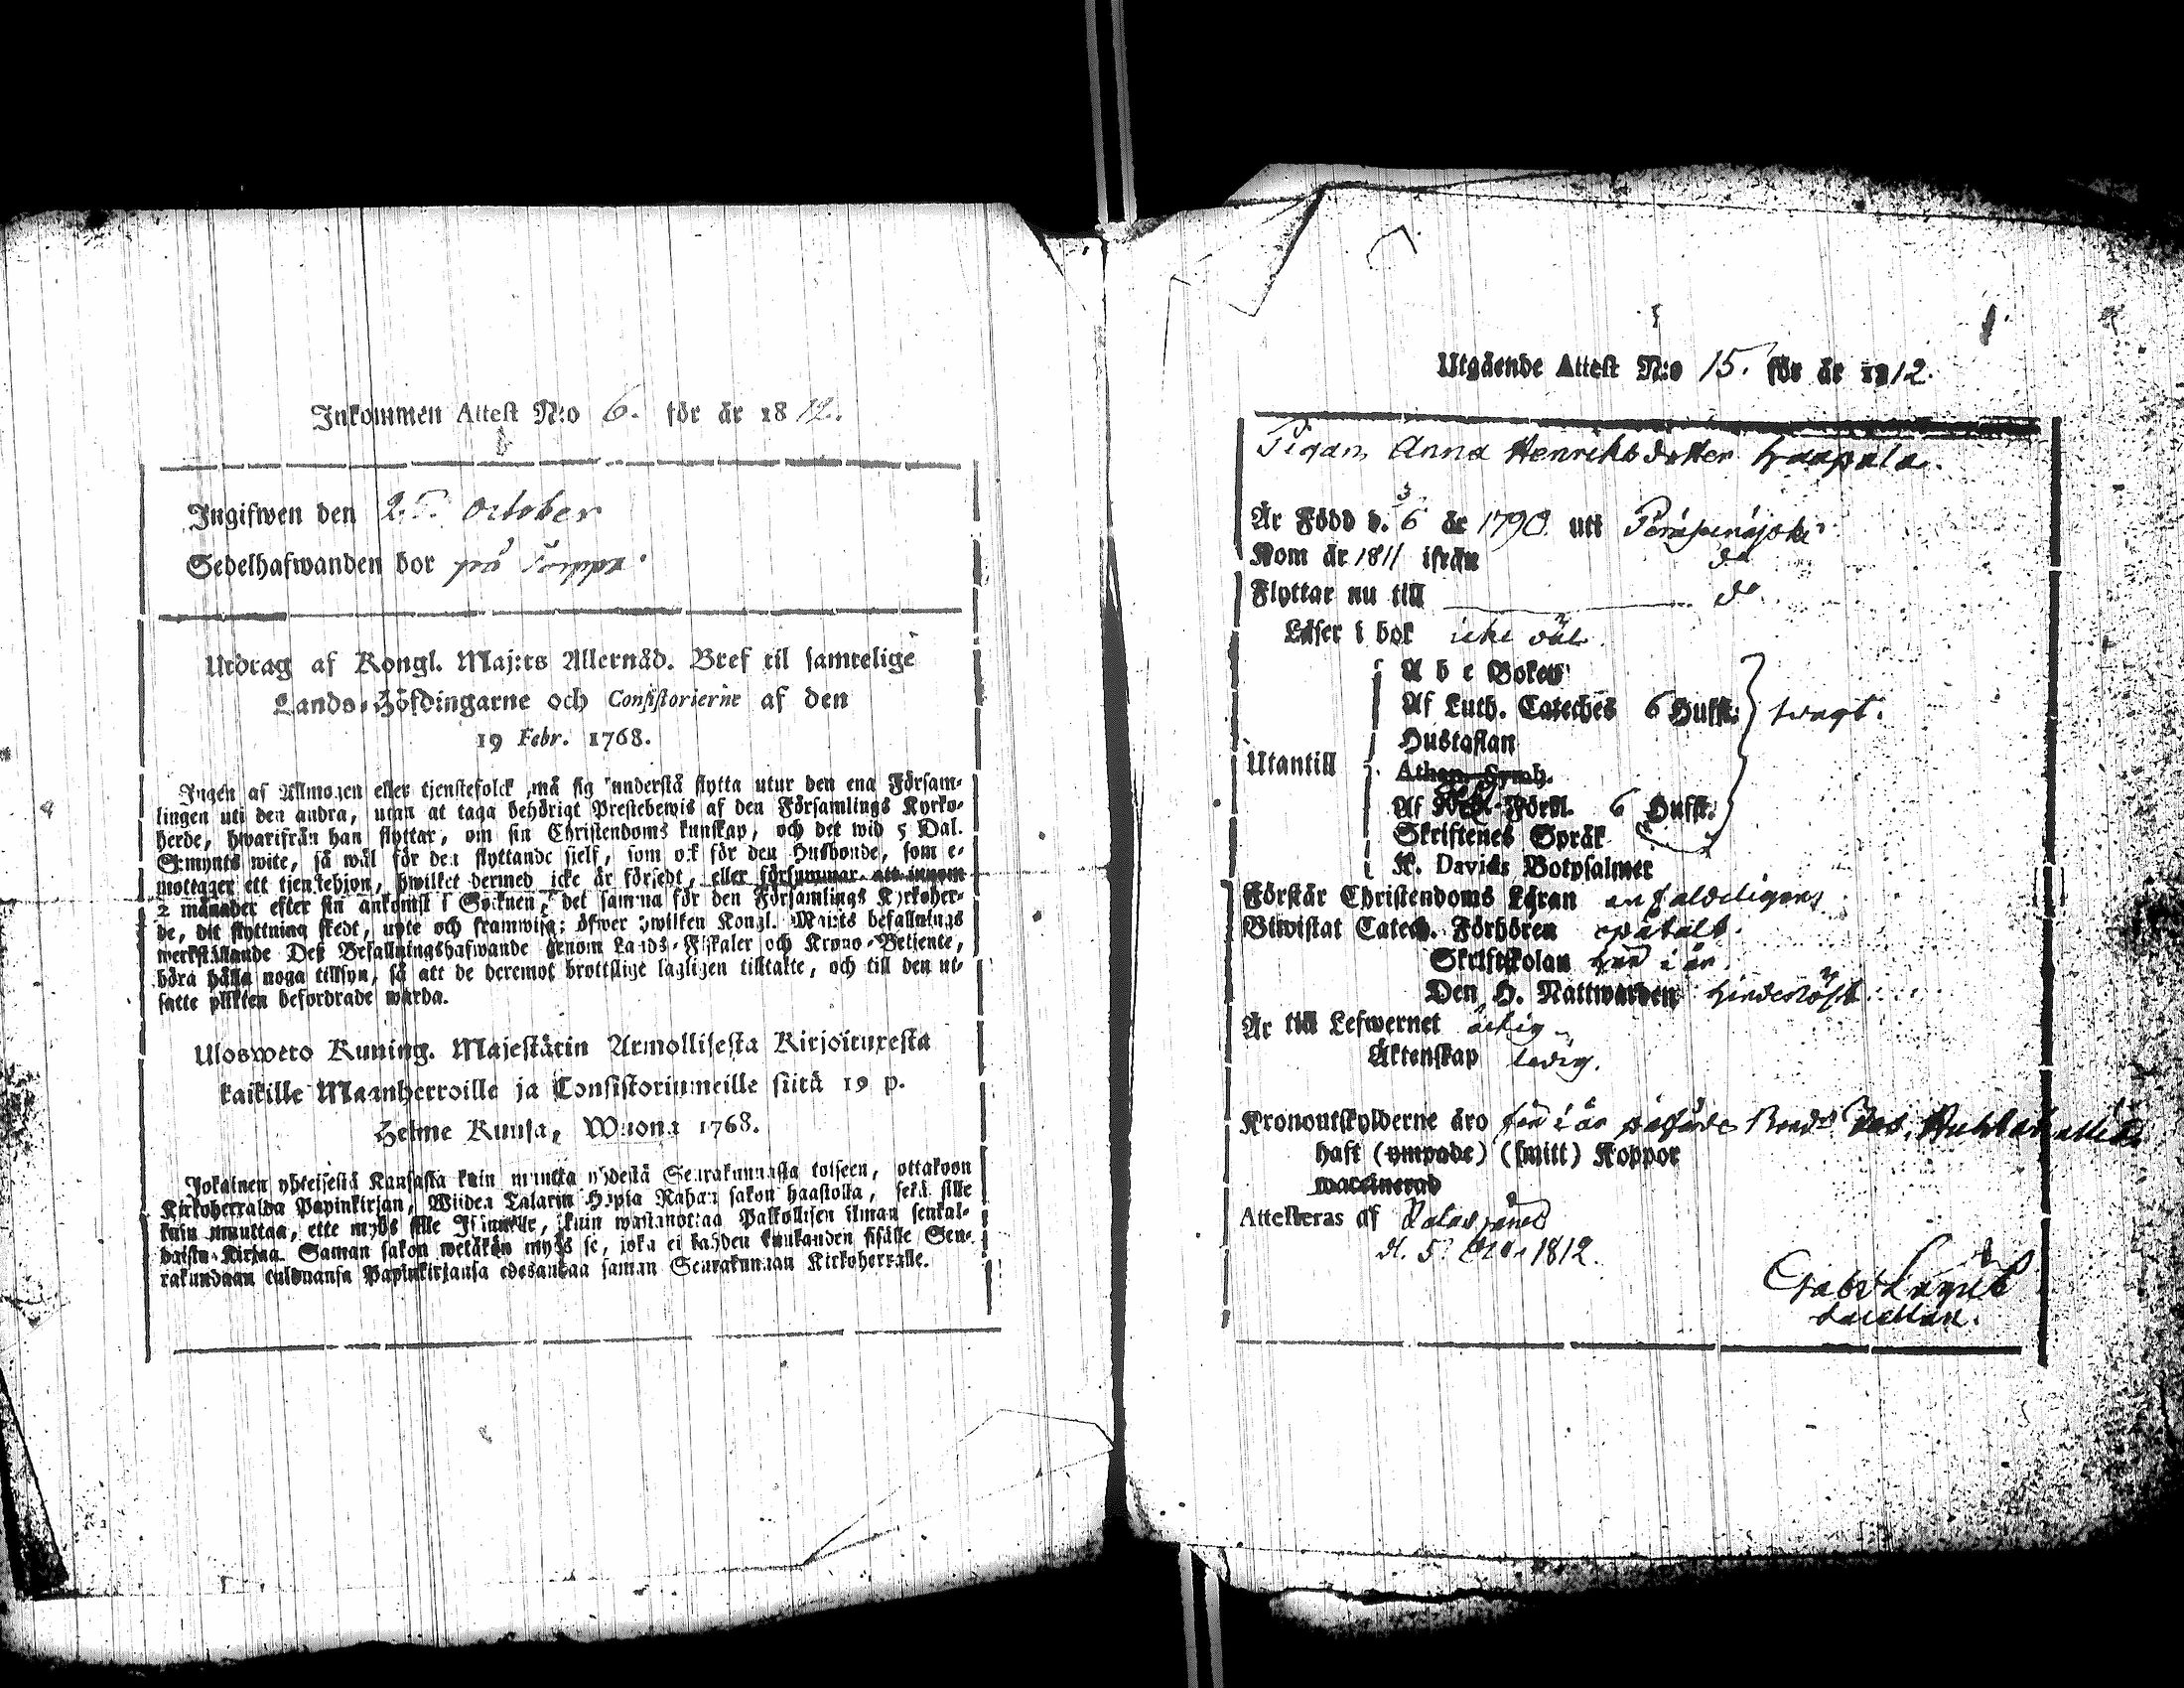 Inkommen Attest N:o 6. för år 1812.
Ingifwen den 25. October
Sedelhafwanden bor på
Utdrag af Kongl. Maj:ts Allernåd. Bref til samtelige
Lands-Höfdingarne och Consistorierne af den
19 Febr. 1768.
Ingen af Allmogen eller tjenstefolck, må sig understå flytta utur den ena Försam-
lingen uti den andra, utan at taga behörigt Prestebewis af den Församlings Kyrko-
herde, hwarifrån han flyttar, om sin Christendoms kunskap, och det wid 5 Dal.
S:mynts wite, så wäl för den flyttande sielf, som ock för den Husbonde, som e-
mottager ett tienstehjon, hwilket dermed icke är försedt, eller försummar att innom
2 månader efter sin ankomst i Socknen, det samma för den Församlings Kyrkoher-
de, dit flyttning skedt, upte och framwisa; öfwer hwilken Kongl. Maj:ts befallnings
werkställande Dess Befallningshafwande genom Lands-Fiskaler och Krono-Betjente,
böra hålla noga tillsyn, så att de deremot brottslige lagligen tilltalte, och till den ut-
satte plikten befordrade warda.
Uloswero Kuning. Majestätin Armollisesta Kirjoituxesta
kaikille Maanherroille ja Consistoriumeille siitä 19 p.
Helme Kuusa, Wuona 1768.
Jokainen yhteisestä Kansasta kuin muutta yhdestä Seurakunnasta toiseen, ottakoon
Kirkoherralda Papinkirjan, Wiiden Talarin Hopia Rahan sakon haastolla, sekä sille
kuin muuttaa, ette myös sille Isännälle, kuin wastanottaa Palkollisen ilman senkal-
daista Kirjaa. Saman sakon wetäkön myös se, joka ei kahden kuukauden sisälle Seu-
rakundaan tulduansa Papinkirjansa edesandaa saman Seurakunnan Kirkoherralle.
Utgående Attest N:o 15. för år 1812.
Pigan Anna Henriksdotter Haapala.
Är Född d. 6/3 år 1790 uti Peräseinäjoki
Kom år 1811 ifrån do
Flyttar nu till do
Läser i bok icke väl
A b c Boken
Af Luth. Cateches 6 Hufst: swagt.
Hustaflan
Utantill
Athan. Symb.
Af Förkl. 6 Hufst:
Skriftenes Språk
K. Davids Botpsalmer
Förstår Christendoms Läran enfaldeligen
Biwistat Catech. Förhören
Skriftskolan i år
Den H. Nattwarden
Är till Lefwernet ärlig
Äktenskap ledig.
Kronoutskylderne äro för i år påförde
haft (ympade) (smitt) Koppor
waccinerad
Attesteras af
d. 5 1812.
Gabr Lagus